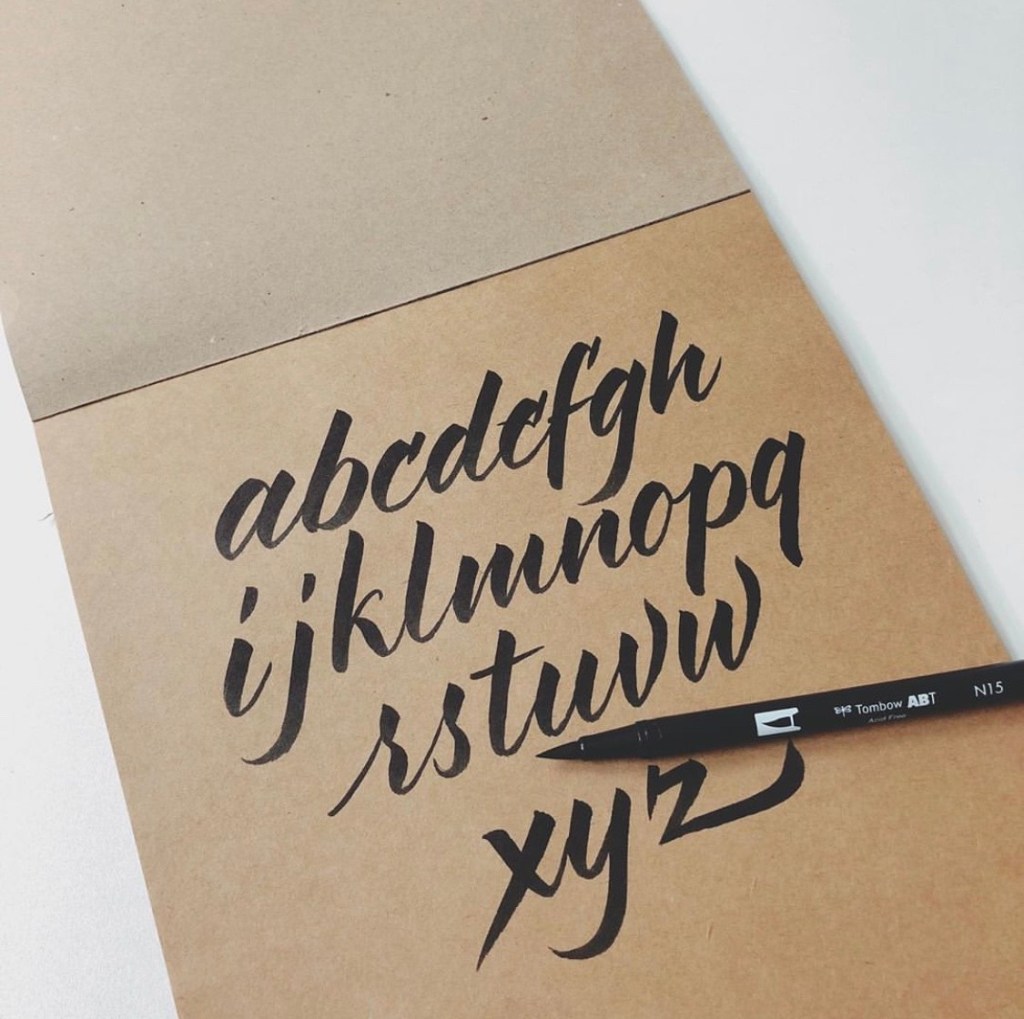 abcdefgh
ijklmnopq
rstuvw
xyz
Tombow ABT N15
Acid Free